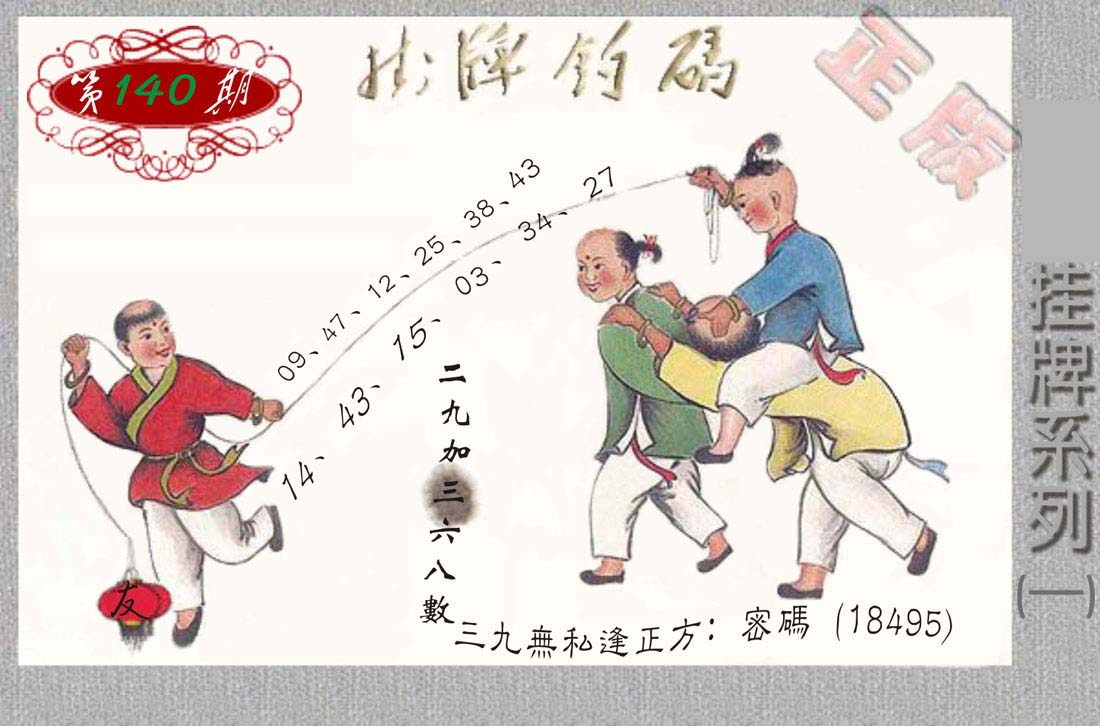 第140期
掛牌釣碼
正版
09、47、12、25、38、43
14、43、15、03、34、27
二九加三六八數
三九無私逢正方：密碼 (18495)
友
挂牌系列(一)